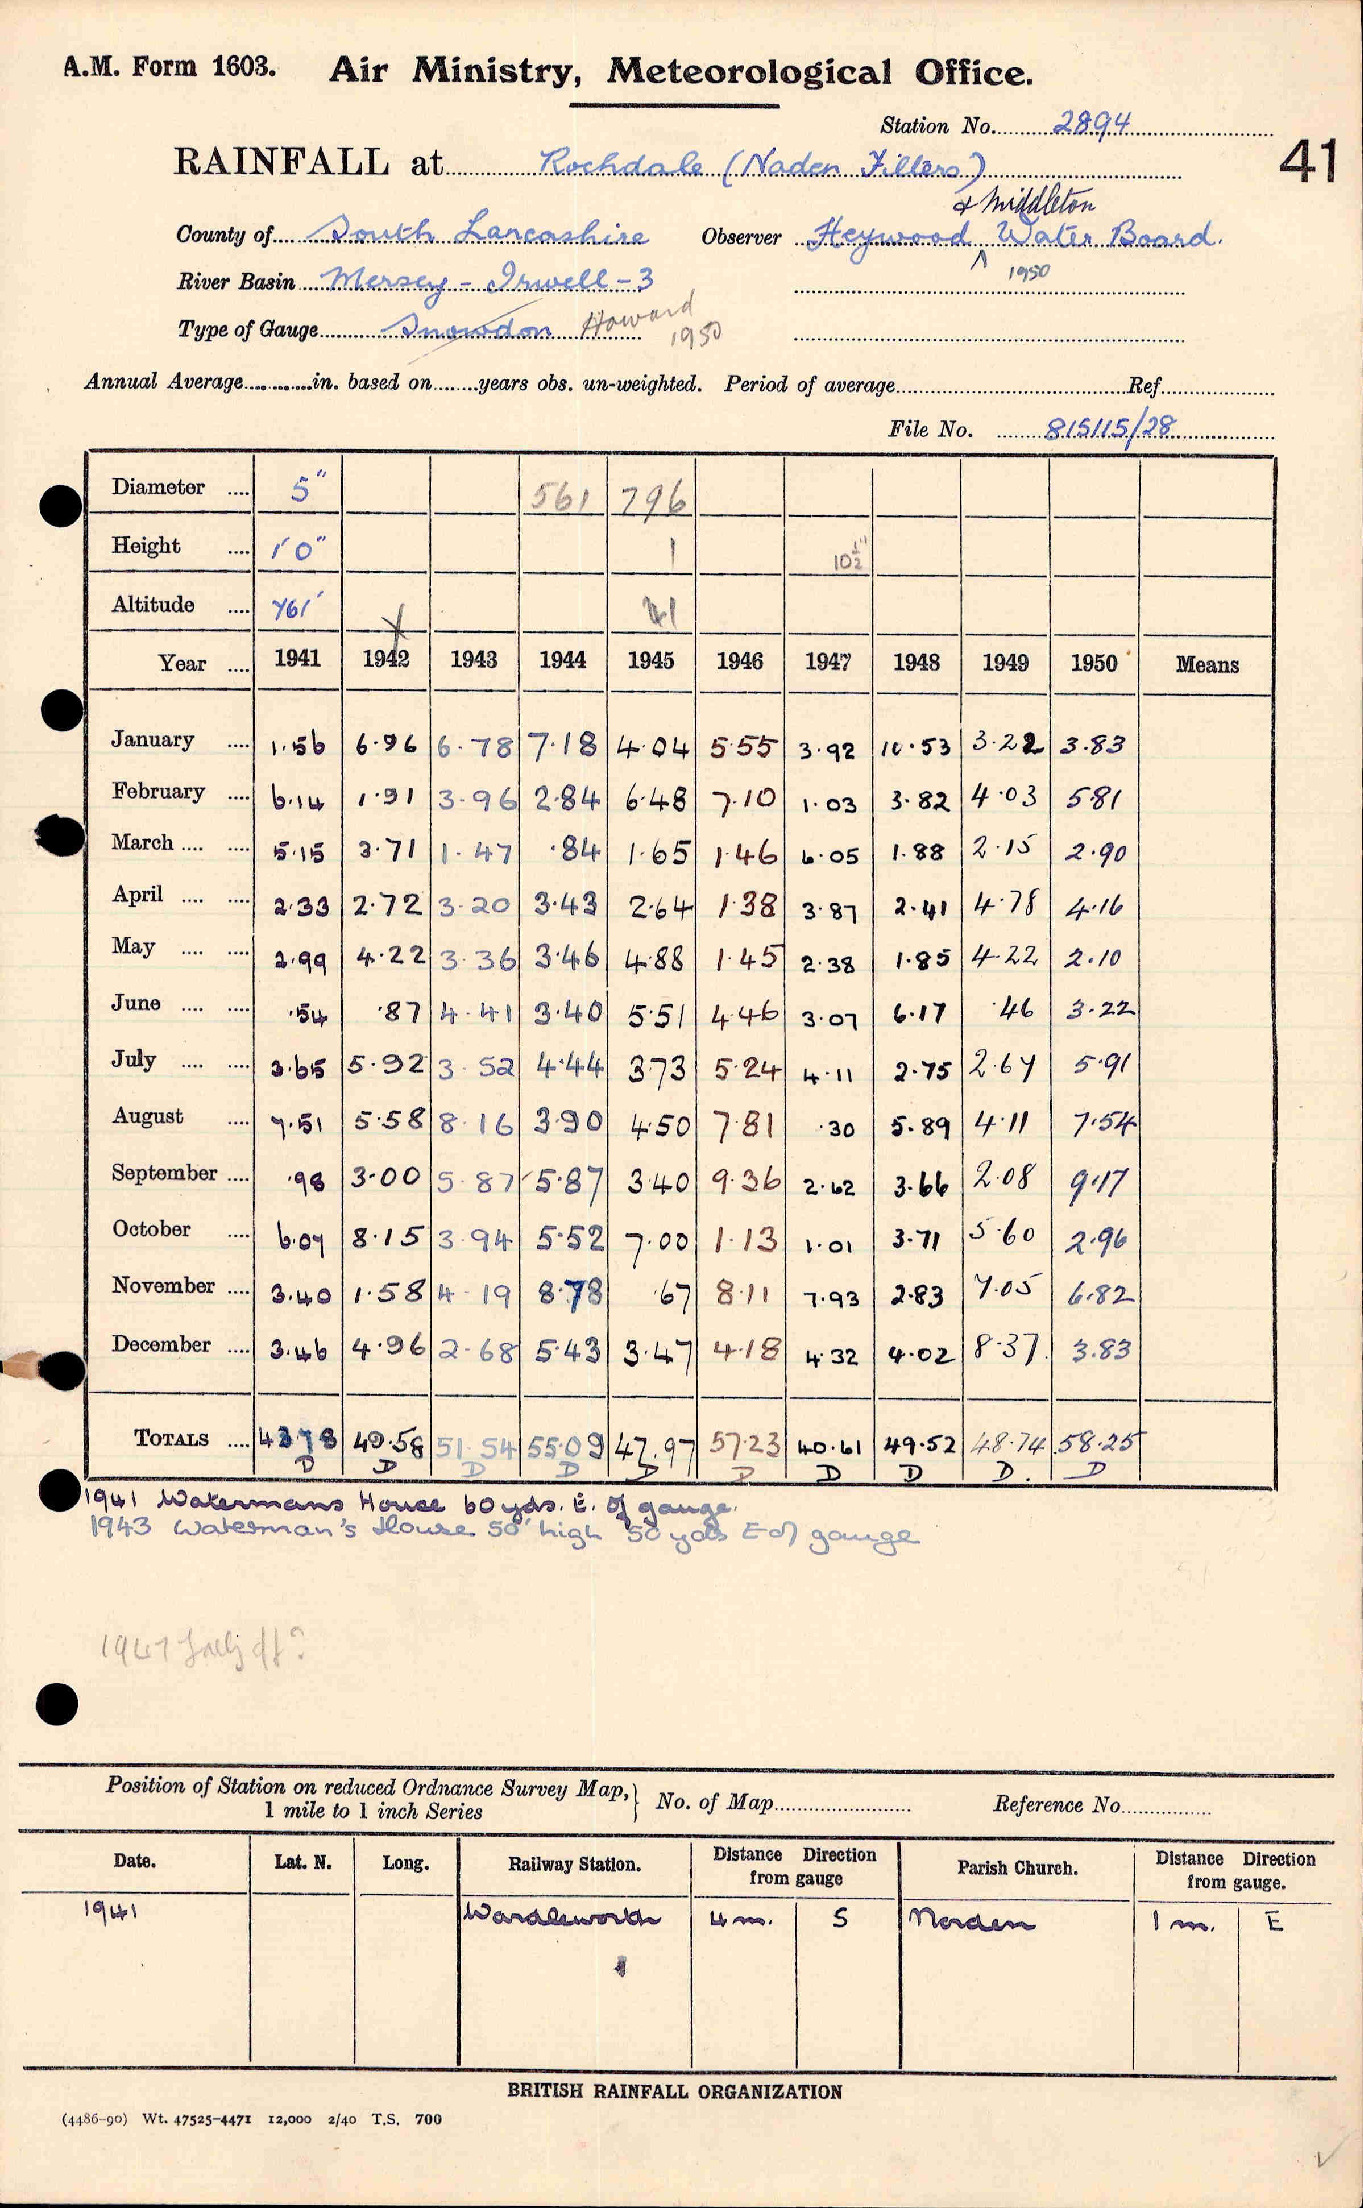 A.M. Form 1603. Air Ministry, Meteorological Office.
Station No. 2894
41
RAINFALL at Rochdale (Naden Filters)
& Middleton
County of South Lancashire Observer Heywood ^ Water Board.
1950
River Basin Mersey - Irwell - 3
Type of Gauge Snowdon Howard 1950
Annual Average in. based on years obs. un-weighted. Period of average Ref.
File No. 815115/28
Diameter 5" 561 796
Height 1' 0" 1 10½"
Altitude 761' 41
Year 1941 1942 1943 1944 1945 1946 1947 1948 1949 1950 Means
January 1.56 6.96 6.78 7.18 4.04 5.55 3.92 10.53 3.22 3.83
February 6.14 1.91 3.96 2.84 6.48 7.10 1.03 3.82 4.03 5.81
March 5.15 3.71 1.47 .84 1.65 1.46 6.05 1.88 2.15 2.90
April 2.33 2.72 3.20 3.43 2.64 1.38 3.87 2.41 4.78 4.16
May 2.99 4.22 3.36 3.46 4.88 1.45 2.38 1.85 4.22 2.10
June .54 .87 4.41 3.40 5.51 4.46 3.07 6.17 .46 3.22
July 3.65 5.92 3.52 4.44 3.73 5.24 4.11 2.75 2.67 5.91
August 7.51 5.58 8.16 3.90 4.50 7.81 .30 5.89 4.11 7.54
September .98 3.00 5.87 5.87 3.40 9.36 2.62 3.66 2.08 9.17
October 6.07 8.15 3.94 5.52 7.00 1.13 1.01 3.71 5.60 2.96
November 3.40 1.58 4.19 8.78 .67 8.11 7.93 2.83 7.05 6.82
December 3.46 4.96 2.68 5.43 3.47 4.18 4.32 4.02 8.37 3.83
TOTALS 43.78 49.58 51.54 55.09 47.97 57.23 40.61 49.52 48.74 58.25
D D D D D D D D D. D
1941 Watermans House 60 yds. E. of gauge.
1943 Waterman's House 50' high 50 yds E of gauge
1947
Position of Station on reduced Ordnance Survey Map, 1 mile to 1 inch Series } No. of Map Reference No.
Date. Lat. N. Long. Railway Station. Distance Direction from gauge Parish Church. Distance Direction from gauge.
1941 Wardleworth 4 m. S Norden 1 m. E
BRITISH RAINFALL ORGANIZATION
(4486-90) Wt. 47525-4471 12,000 2/40 T.S. 700